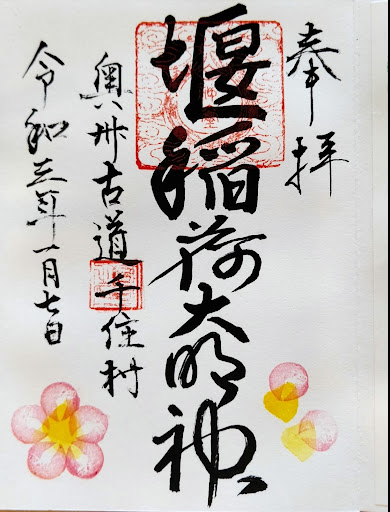 奉拝
堰稲荷大明神
奥州古道千住村
令和三年一月七日